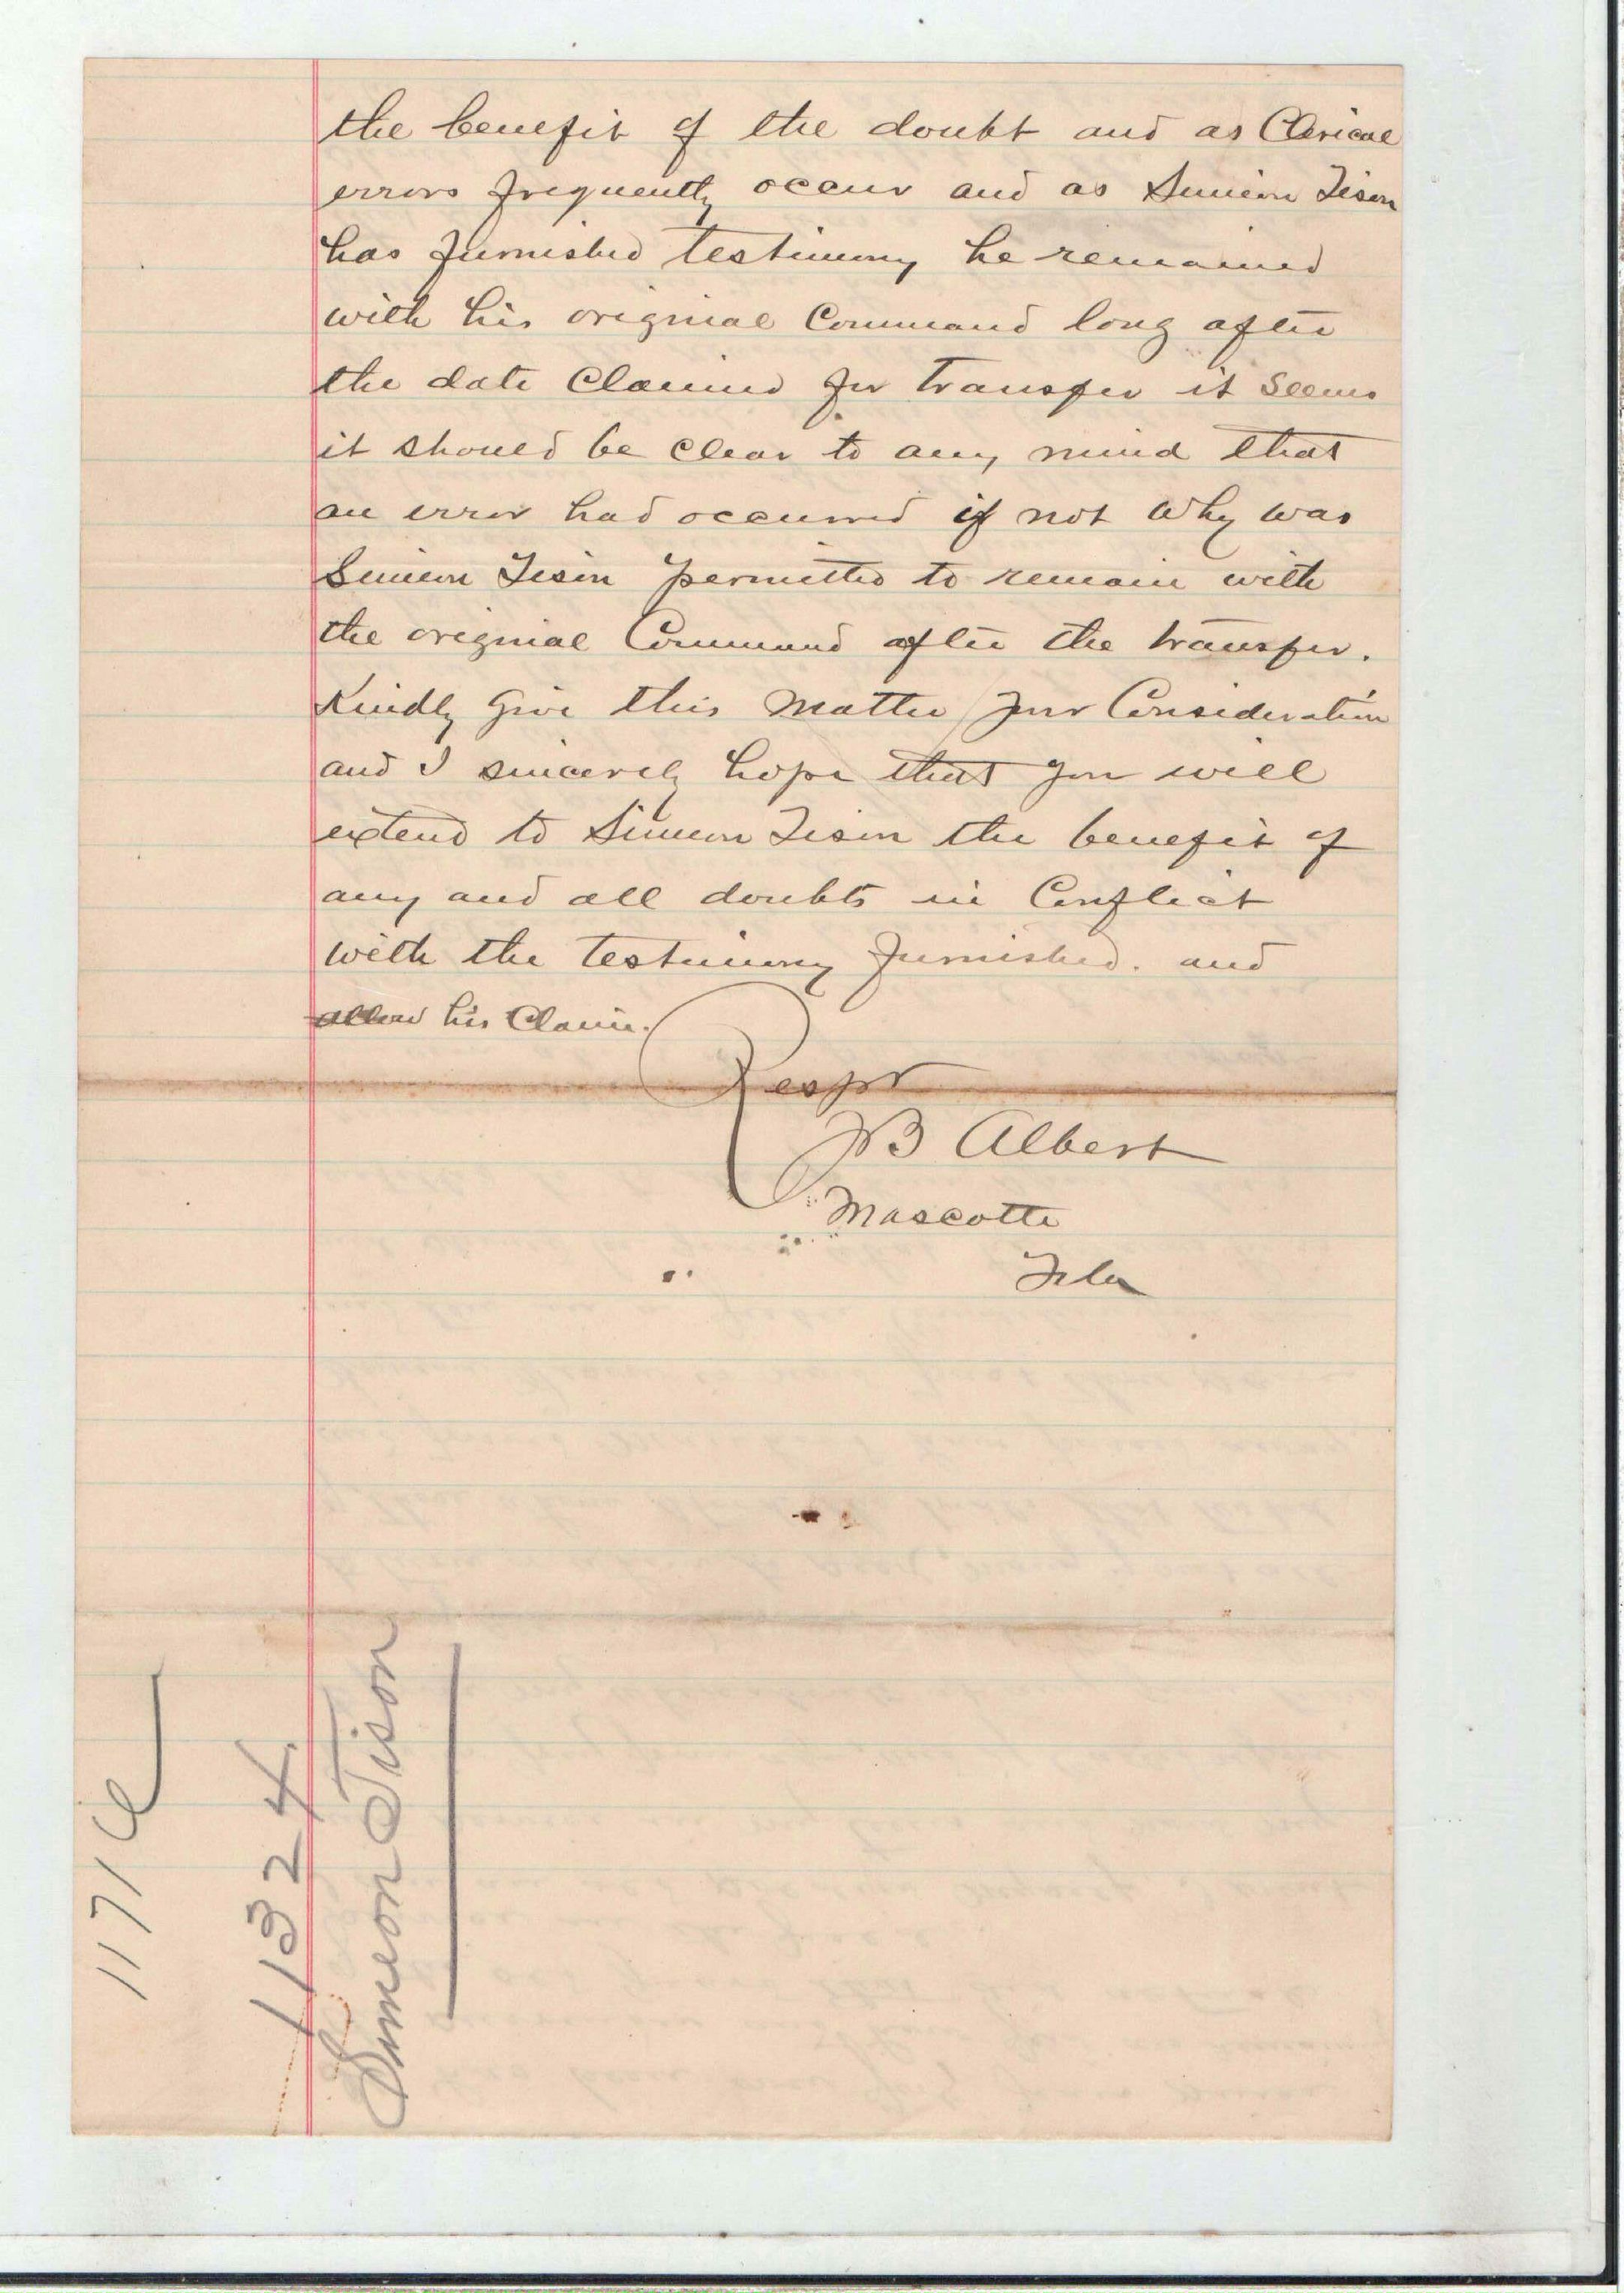 the benefit of the doubt and as Clerical
errors frequently occur and as Simeon Tison
has furnished testimony he remained
with his original Command long after
the date Claimed for transfer it seems
it should be clear to any mind that
an error had occurred if not why was
Simeon Tison permitted to remain with
the original Command after the transfer.
Kindly give this matter your Consideration
and I sincerely hope that you will
extend to Simeon Tison the benefit of
any and all doubts in Conflict
with the testimony furnished. and
allow his Claim.
Respt
JB Albert
Mascotte
Fla
1171
11324
Simeon Tison